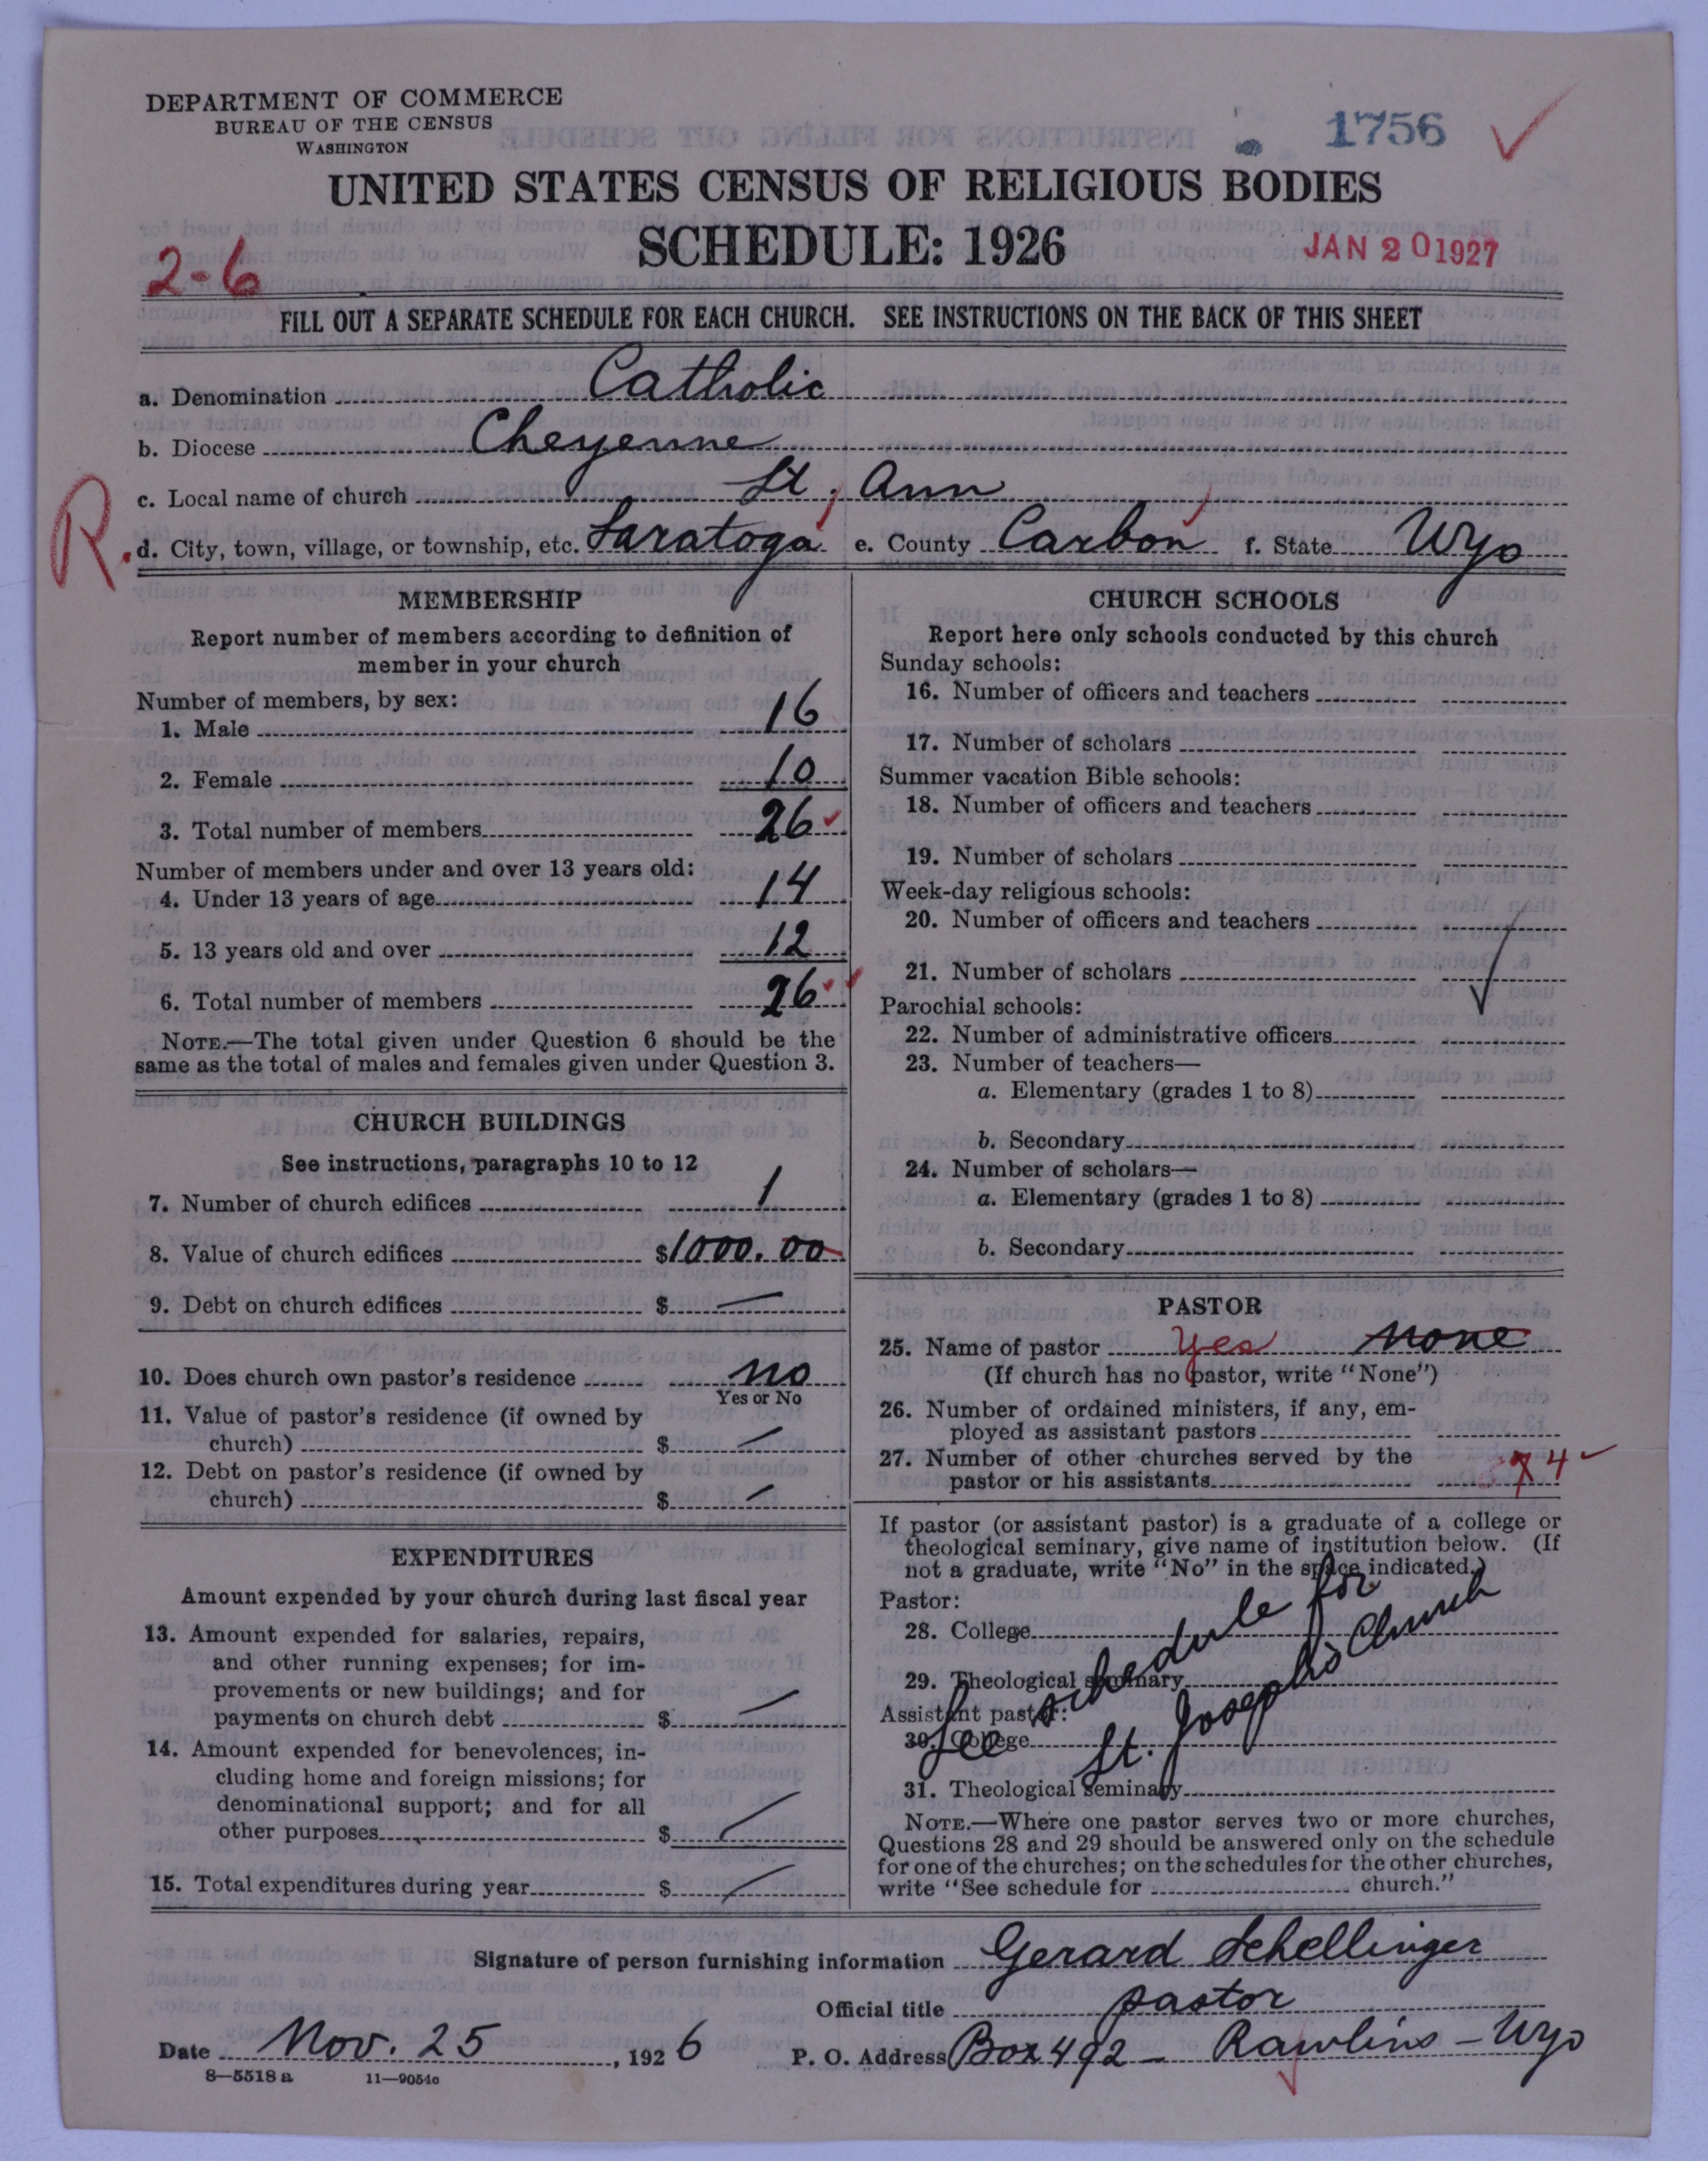 DEPARTMENT OF COMMERCE
BUREAU OF THE CENSUS
WASHINGTON
1756
UNITED STATES CENSUS OF RELIGIOUS BODIES
SCHEDULE: 1926
JAN 20 1927
2-6
FILL OUT A SEPARATE SCHEDULE FOR EACH CHURCH. SEE INSTRUCTIONS ON THE BACK OF THIS SHEET
a. Denomination Catholic
b. Diocese Cheyenne
c. Local name of church St. Ann
R. d. City, town, village, or township, etc. Saratoga e. County Carbon f. State Wyo
MEMBERSHIP
Report number of members according to definition of
member in your church
Number of members, by sex:
1. Male 16
2. Female 10
3. Total number of members 26
Number of members under and over 13 years old:
4. Under 13 years of age 14
5. 13 years old and over 12
6. Total number of members 26
NOTE.—The total given under Question 6 should be the
same as the total of males and females given under Question 3.
CHURCH BUILDINGS
See instructions, paragraphs 10 to 12
7. Number of church edifices 1
8. Value of church edifices $1000.00
9. Debt on church edifices $ —
10. Does church own pastor's residence no
Yes or No
11. Value of pastor's residence (if owned by
church) $ —
12. Debt on pastor's residence (if owned by
church) $ —
EXPENDITURES
Amount expended by your church during last fiscal year
13. Amount expended for salaries, repairs,
and other running expenses; for im-
provements or new buildings; and for
payments on church debt $ —
14. Amount expended for benevolences, in-
cluding home and foreign missions; for
denominational support; and for all
other purposes $ —
15. Total expenditures during year $ —
CHURCH SCHOOLS
Report here only schools conducted by this church
Sunday schools:
16. Number of officers and teachers
17. Number of scholars
Summer vacation Bible schools:
18. Number of officers and teachers
19. Number of scholars
Week-day religious schools:
20. Number of officers and teachers
21. Number of scholars
Parochial schools:
22. Number of administrative officers
23. Number of teachers—
a. Elementary (grades 1 to 8)
b. Secondary
24. Number of scholars—
a. Elementary (grades 1 to 8)
b. Secondary
PASTOR
25. Name of pastor yes none
(If church has no pastor, write "None")
26. Number of ordained ministers, if any, em-
ployed as assistant pastors
27. Number of other churches served by the
pastor or his assistants 4
If pastor (or assistant pastor) is a graduate of a college or
theological seminary, give name of institution below. (If
not a graduate, write "No" in the space indicated.)
Pastor:
28. College
29. Theological seminary
Assistant pastor:
30. College
31. Theological seminary
See schedule for
St. Joseph's Church
NOTE.—Where one pastor serves two or more churches,
Questions 28 and 29 should be answered only on the schedule
for one of the churches; on the schedules for the other churches,
write "See schedule for church."
Signature of person furnishing information Gerard Schellinger
Official title pastor
Date Nov. 25, 1926 P. O. Address Box 492 — Rawlins — Wyo
8—5518 a 11—9054c